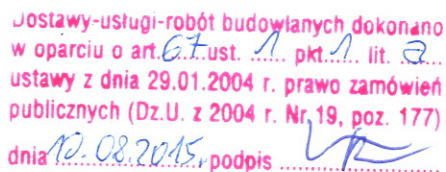 Dostawy-usługi-robót budowlanych dokonano
w oparciu o art. 67 ust. 1 pkt. 1 lit. a
ustawy z dnia 29.01.2004 r. prawo zamówień
publicznych (Dz.U. z 2004 r. Nr 19, poz. 177)
dnia 10.08.2015. podpis